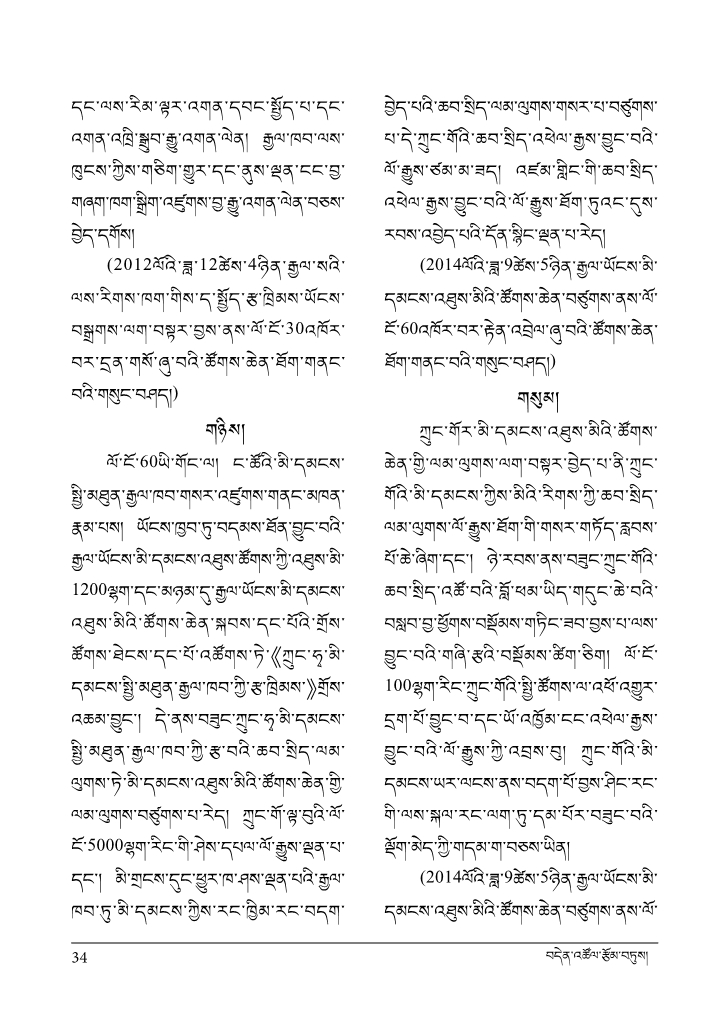 དང་ལས་རིམ་ལྟར་འགན་དབང་སྤྱོད་པ་དང་
འགན་འཁྲི་སྒྲུབ་རྒྱུ་འགན་ལེན། རྒྱལ་ཁབ་ལས་
ཁུངས་ཀྱིས་གཅིག་གྱུར་དང་ནུས་ལྡན་ངང་བྱ་
གཞག་ཁག་སྒྲིག་འཛུགས་བྱ་རྒྱུ་འགན་ལེན་བཅས་
བྱེད་དགོས།
(2012ལོའི་ཟླ་12ཚེས་4ཉིན་རྒྱལ་སའི་
ལས་རིགས་ཁག་གིས་ད་སྤྱོད་རྩ་ཁྲིམས་ཡོངས་
བསྒྲགས་ལག་བསྟར་བྱས་ནས་ལོ་ངོ་30འཁོར་
བར་དྲན་གསོ་ཞུ་བའི་ཚོགས་ཆེན་ཐོག་གནང་
བའི་གསུང་བཤད།)
གཉིས།
ལོ་ངོ་60ཡི་གོང་ལ། ང་ཚོའི་མི་དམངས་
སྤྱི་མཐུན་རྒྱལ་ཁབ་གསར་འཛུགས་གནང་མཁན་
རྣམ་པས། ཡོངས་ཁྱབ་ཏུ་བདམས་ཐོན་བྱུང་བའི་
རྒྱལ་ཡོངས་མི་དམངས་འཐུས་ཚོགས་ཀྱི་འཐུས་མི་
1200ལྷག་དང་མཉམ་དུ་རྒྱལ་ཡོངས་མི་དམངས་
འཐུས་མིའི་ཚོགས་ཆེན་སྐབས་དང་པོའི་གྲོས་
ཚོགས་ཐེངས་དང་པོ་འཚོགས་ཏེ་《ཀྲུང་ཧྭ་མི་
དམངས་སྤྱི་མཐུན་རྒྱལ་ཁབ་ཀྱི་རྩ་ཁྲིམས་》གྲོས་
འཆམ་བྱུང་། དེ་ནས་བཟུང་ཀྲུང་ཧྭ་མི་དམངས་
སྤྱི་མཐུན་རྒྱལ་ཁབ་ཀྱི་རྩ་བའི་ཆབ་སྲིད་ལམ་
ལུགས་ཏེ་མི་དམངས་འཐུས་མིའི་ཚོགས་ཆེན་གྱི་
ལམ་ལུགས་བཙུགས་པ་རེད། ཀྲུང་གོ་ལྟ་བུའི་ལོ་
ངོ་5000ལྷག་རིང་གི་ཤེས་དཔལ་ལོ་རྒྱུས་ལྡན་པ་
དང་། མི་གྲངས་དུང་ཕྱུར་ཁ་ཤས་ལྡན་པའི་རྒྱལ་
ཁབ་ཏུ་མི་དམངས་ཀྱིས་རང་ཁྱིམ་རང་བདག་
བྱེད་པའི་ཆབ་སྲིད་ལམ་ལུགས་གསར་པ་བཙུགས་
པ་དེ་ཀྲུང་གོའི་ཆབ་སྲིད་འཕེལ་རྒྱས་བྱུང་བའི་
ལོ་རྒྱུས་ཙམ་མ་ཟད། འཛམ་གླིང་གི་ཆབ་སྲིད་
འཕེལ་རྒྱས་བྱུང་བའི་ལོ་རྒྱུས་ཐོག་ཏུའང་དུས་
རབས་འབྱེད་པའི་དོན་སྙིང་ལྡན་པ་རེད།
(2014ལོའི་ཟླ་9ཚེས་5ཉིན་རྒྱལ་ཡོངས་མི་
དམངས་འཐུས་མིའི་ཚོགས་ཆེན་བཙུགས་ནས་ལོ་
ངོ་60འཁོར་བར་རྟེན་འབྲེལ་ཞུ་བའི་ཚོགས་ཆེན་
ཐོག་གནང་བའི་གསུང་བཤད།)
གསུམ།
ཀྲུང་གོར་མི་དམངས་འཐུས་མིའི་ཚོགས་
ཆེན་གྱི་ལམ་ལུགས་ལག་བསྟར་བྱེད་པ་ནི་ཀྲུང་
གོའི་མི་དམངས་ཀྱིས་མིའི་རིགས་ཀྱི་ཆབ་སྲིད་
ལམ་ལུགས་ལོ་རྒྱུས་ཐོག་གི་གསར་གཏོད་རླབས་
པོ་ཆེ་ཞིག་དང་། ཉེ་རབས་ནས་བཟུང་ཀྲུང་གོའི་
ཆབ་སྲིད་འཚོ་བའི་བློ་ཕམ་ཡིད་གདུང་ཆེ་བའི་
བསླབ་བྱ་ཕྱོགས་བསྡོམས་གཏིང་ཟབ་བྱས་པ་ལས་
བྱུང་བའི་གཞི་རྩའི་བསྡོམས་ཚིག་ཅིག། ལོ་ངོ་
100ལྷག་རིང་ཀྲུང་གོའི་སྤྱི་ཚོགས་ལ་འཕོ་འགྱུར་
དྲག་པོ་བྱུང་བ་དང་ཡོ་འཁྱོམ་ངང་འཕེལ་རྒྱས་
བྱུང་བའི་ལོ་རྒྱུས་ཀྱི་འབྲས་བུ། ཀྲུང་གོའི་མི་
དམངས་ཡར་ལངས་ནས་བདག་པོ་བྱས་ཤིང་རང་
གི་ལས་སྐལ་རང་ལག་ཏུ་དམ་པོར་བཟུང་བའི་
ལྡོག་མེད་ཀྱི་གདམ་ག་བཅས་ཡིན།
(2014ལོའི་ཟླ་9ཚེས་5ཉིན་རྒྱལ་ཡོངས་མི་
དམངས་འཐུས་མིའི་ཚོགས་ཆེན་བཙུགས་ནས་ལོ་
34
བདེན་འཚོལ་རྩོམ་བཏུས།